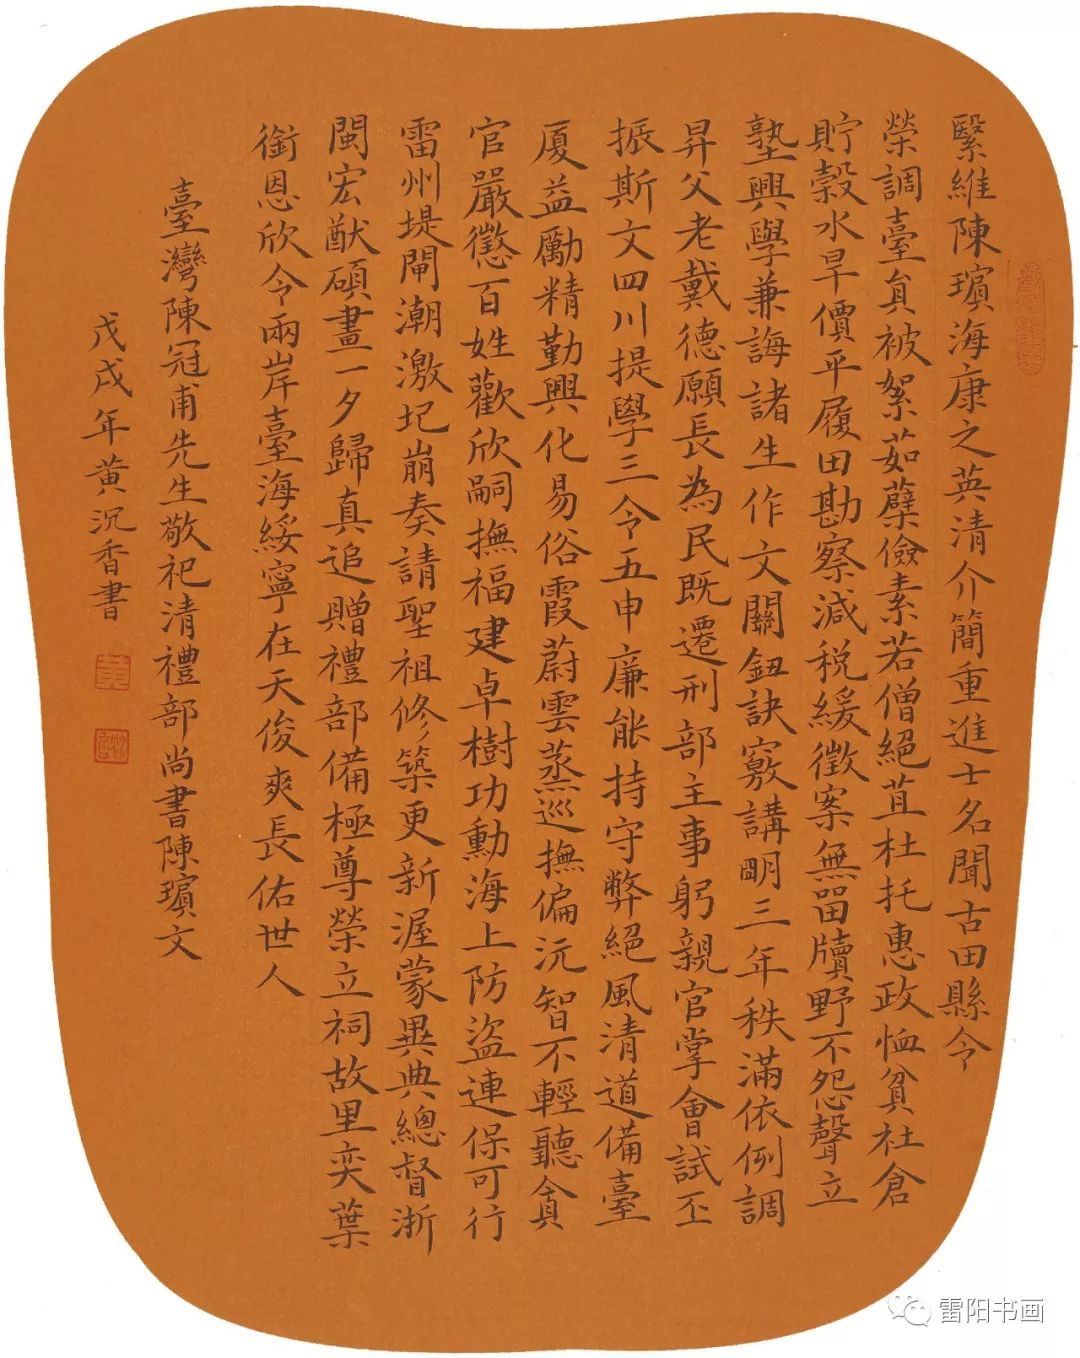 繄維陳璸海康之英清介簡重進士名聞古田縣令
榮調臺員被絮茹蘗儉素若僧絕苴杜托惠政恤貧社倉
貯穀水旱價平履田勘察減稅緩徵案無留牘野不怨聲立
塾興學兼誨諸生作文關鈕訣竅講明三年秩滿依例調
昇父老戴德願長為民既遷刑部主事躬親官掌會試丕
振斯文四川提學三令五申廉能持守弊絕風清道備臺
厦益勵精勤興化易俗霞蔚雲蒸巡撫偏沅智不輕聽貪
官嚴懲百姓歡欣嗣撫福建卓樹功勳海上防盜連保可行
雷州堤閘潮激圮崩奏請聖祖修築更新渥蒙異典總督浙
閩宏猷碩畫一夕歸真追贈禮部備極尊榮立祠故里奕葉
銜恩欣今兩岸臺海綏寧在天俊爽長佑世人
臺灣陳冠甫先生敬祀清禮部尚書陳璸文
戊戌年黄沉香書
雷阳书画